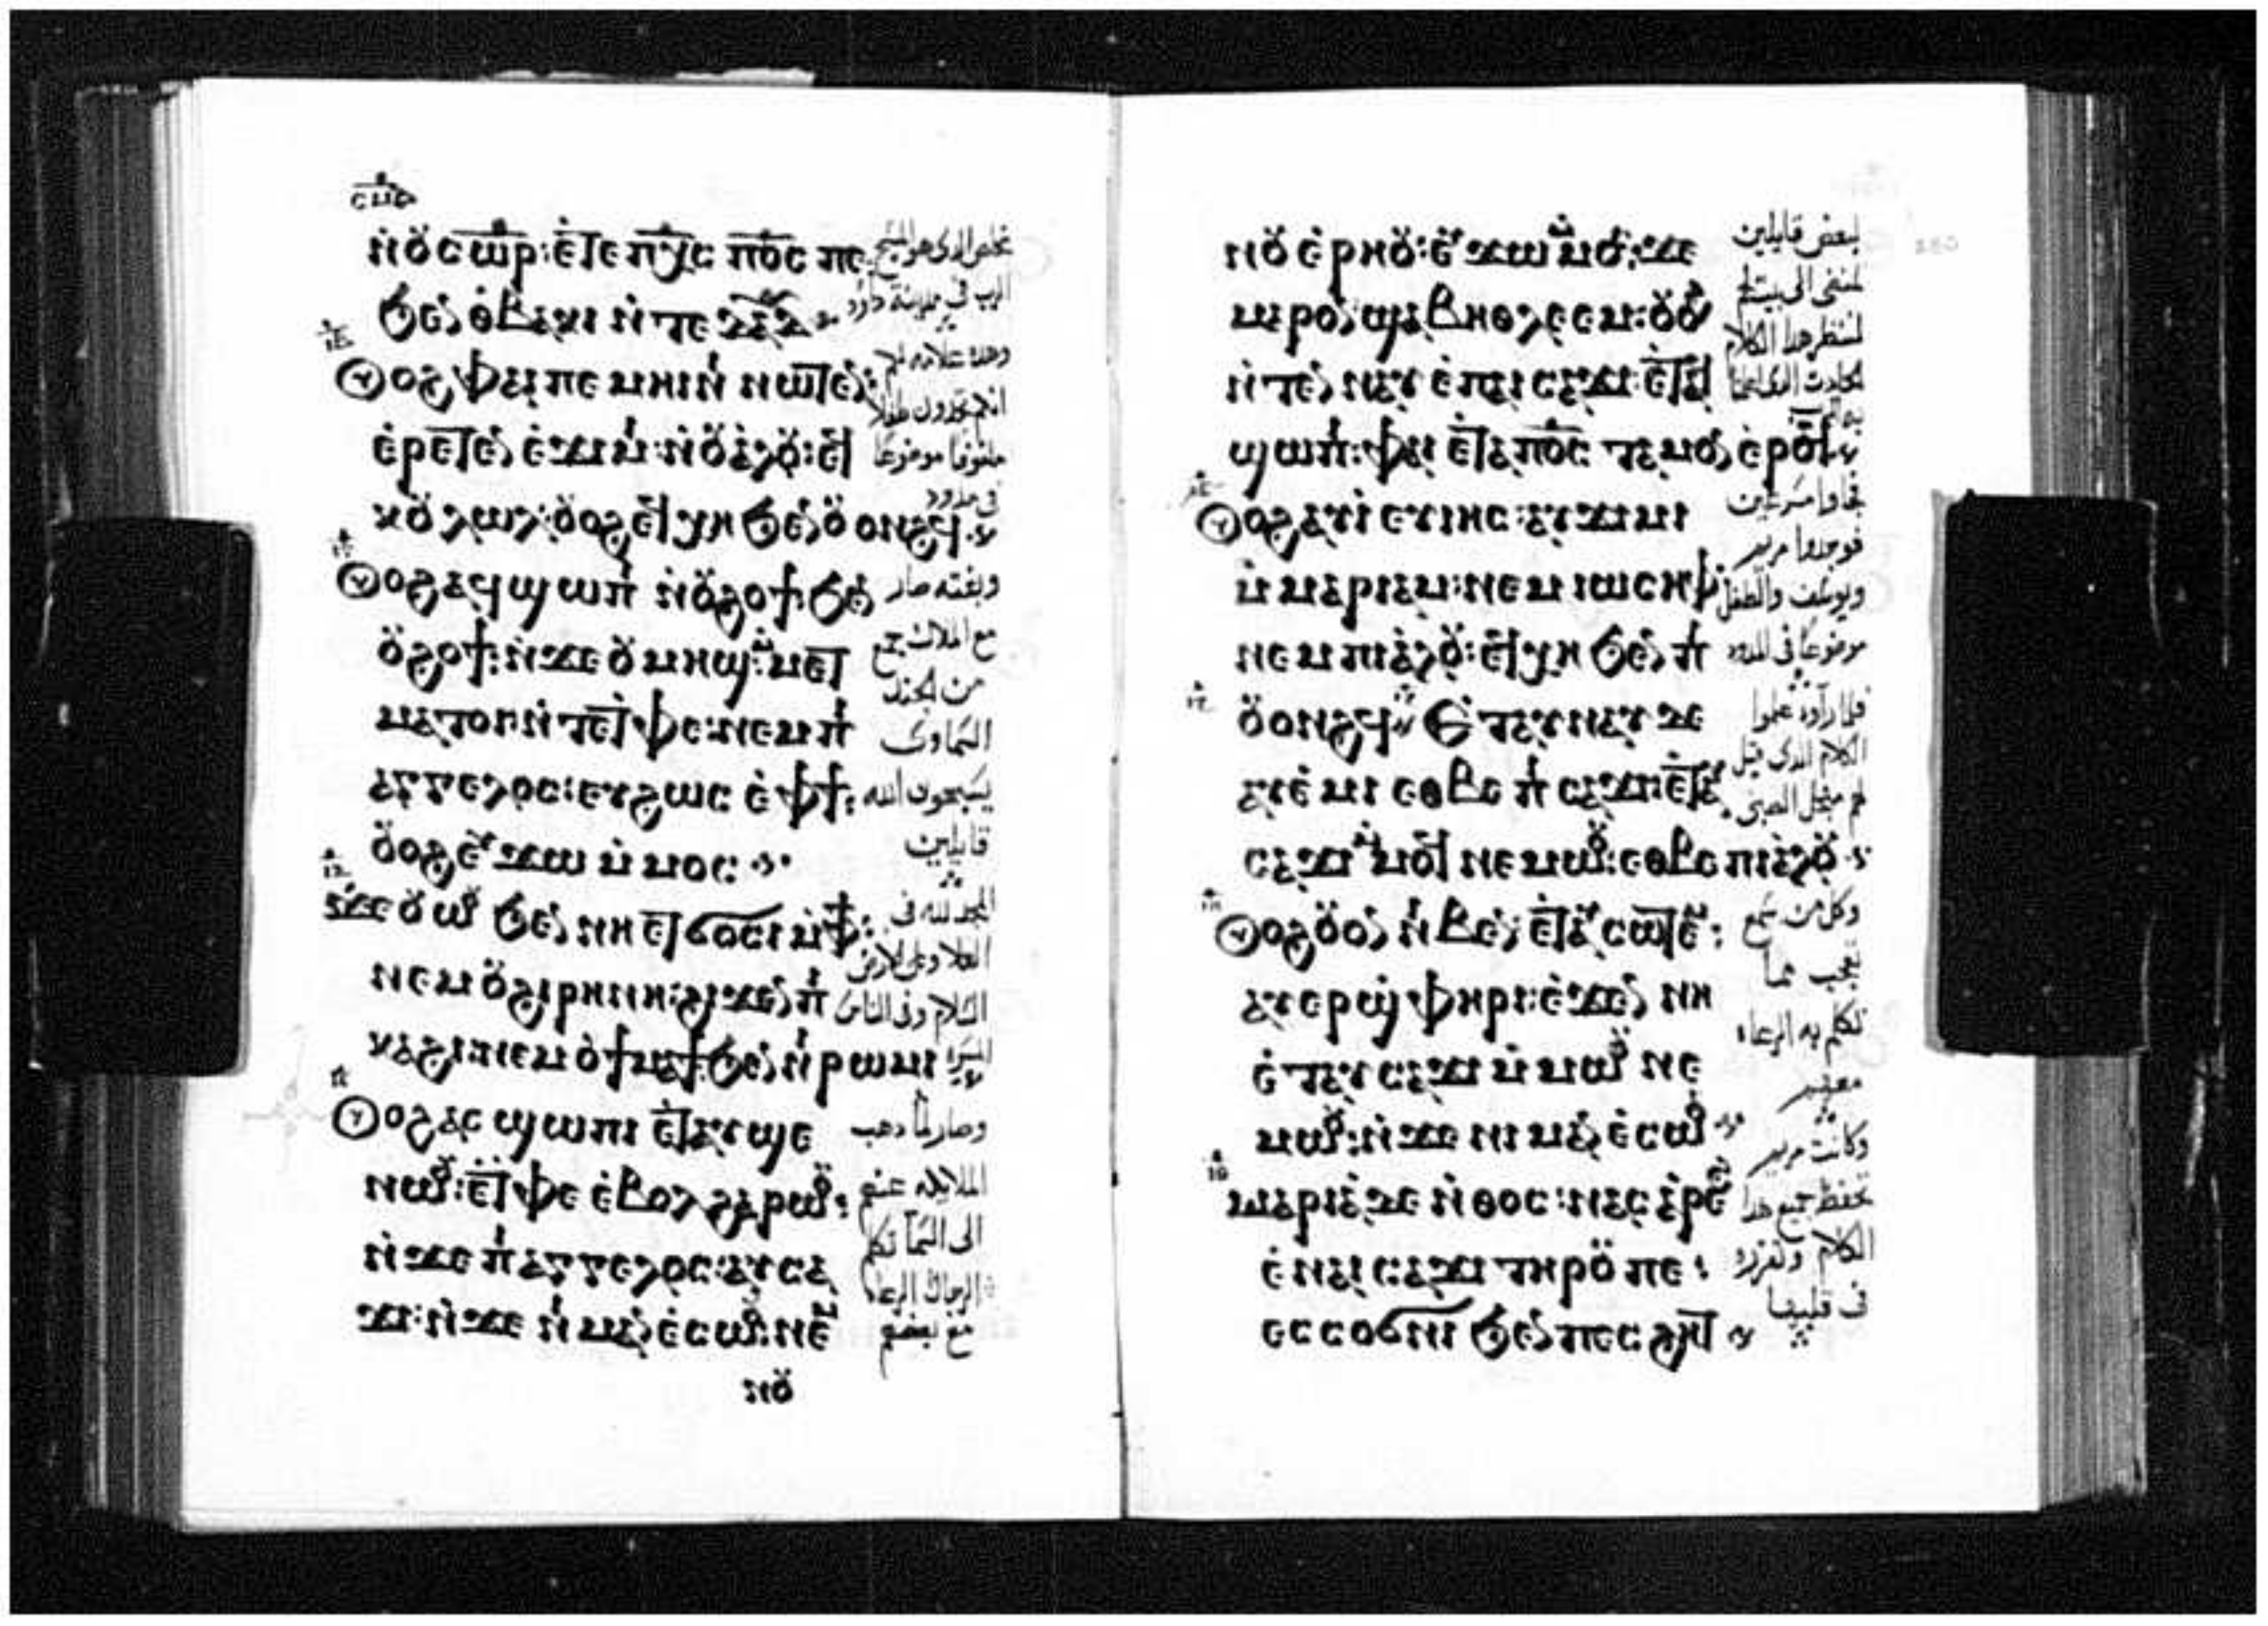 ⲛ̀ⲟ̈ⲥⲱ̅ⲣ̅: ⲉ̀ⲧⲉ ⲡⲭ̅ⲥ̅ ⲡⲟ̅ⲥ̅ ⲡⲉ
ϧⲉⲛ ⲑ̀ⲃⲁⲕⲓ ⲛ̀ⲧⲉ ⲇⲁ̅ⲇ̅
ⲟⲩⲟϩ ⲫⲁⲓ ⲡⲉ ⲙⲏⲓⲛⲓ ⲛⲱⲧⲉⲛ:
ⲉ̀ⲣⲉⲧⲉⲛ ⲉ̀ϫⲓⲙⲓ: ⲛ̀ⲟ̈ⲁ̀ⲗⲟ̈: ⲉϥ
ⲕⲟ̈ⲗⲱⲗ: ⲟ̈ⲟϩ ⲉϥⲭⲏ ϧⲉⲛ ⲟ̈ⲟⲛϩϥ
ⲟⲩⲟϩ ⲁϥϣⲱⲡⲓ ⲛ̀ⲟ̈ϩⲟϯ ϧⲉⲛ
ⲟ̈ϩⲟϯ: ⲛ̀ϫⲉ ⲟ̈ⲙⲏϣ: ⲛⲉⲙ
ⲙⲁⲧⲟⲓ ⲛ̀ⲧⲉ ⲧⲫⲉ: ⲛⲉⲙ ⲡⲓ
ⲁⲅⲅⲉⲗⲟⲥ: ⲉⲩϩⲱⲥ ⲉ̀ⲫϯ:
ⲟ̈ⲟϩ ⲉⲩϫⲱ ⲙ̀ⲙⲟⲥ
ϫⲉ ⲟ̈ⲱⲟⲩ ϧⲉⲛ ⲛⲏ ⲉⲧϭⲟⲥⲓ ⲙ̀ⲫϯ:
ⲛⲉⲙ ⲟ̈ϩⲓⲣⲏⲛⲏ: ϩⲓϫⲉⲛ ⲡⲓ
ⲕⲁϩⲓ: ⲛⲉⲙ ⲟ̈ϯⲙⲁϯ ϧⲉⲛ ⲛⲓⲣⲱⲙⲓ
ⲟⲩⲟϩ ⲁⲥϣⲱⲡⲓ ⲉ̀ⲧⲁⲩϣⲉ
ⲛⲱⲟⲩ: ⲉ̀ⲧⲫⲉ ⲉ̀ⲃⲟⲗ ϩⲁⲣⲱⲟⲩ:
ⲛ̀ϫⲉ ⲡⲓⲁⲅⲅⲉⲗⲟⲥ: ⲁⲩⲥⲁ
ϫⲓ: ⲛ̀ϫⲉ ⲛⲓⲙⲁⲛⲉⲥⲱⲟⲩ: ⲛⲉⲙ
ⲛⲟ̈
مخلص الدى هو المسيح
الرب فى مدينة داود
وهده علامه لكم
انكم تجدون طفلا
ملفوفا موضوعا
فى مدود
وبغته صار
مع الملاك جمع
من الجند
السماوى
يسبحون الله
قايلين
المجد لله فى
العلا وعلى الارض
السلام وفى الناس
المسره
وصار لما دهب
الملايكه عنهم
الى السما تكلم
الرجال الرعاه
مع بعضهم
ⲛⲟ̈ⲉ̀ⲣⲏⲟ̈: ⲉⲩϫⲱ ⲙ̀ⲙⲟⲥ: ϫⲉ
ⲙⲁⲣⲟⲛ ϣⲁ ⲃⲏⲑⲗⲉⲉⲙ: ⲟ̈ⲟϩ
ⲛ̀ⲧⲉⲛⲛⲁⲩ ⲉ̀ⲡⲁⲓⲥⲁϫⲓ: ⲉ̀ⲧⲁϥ
ϣⲱⲡⲓ: ⲫⲏ ⲉ̀ⲧⲁⲡⲟ̅ⲥ̅ ⲧⲁⲙⲟⲛ ⲉ̀ⲣⲟϥ
ⲟⲩⲟϩ ⲁⲩⲓ̀ ⲉⲩⲓⲏⲥ: ⲁⲩϫⲓⲙⲓ
ⲙ̀ⲙⲁⲣⲓⲁⲙ: ⲛⲉⲙ ⲓⲱⲥⲏⲫ:
ⲛⲉⲙ ⲡⲓⲁ̀ⲗⲟ̈: ⲉϥⲭⲏ ϧⲉⲛ ⲡⲓ
ⲟ̈ⲟⲛϩϥ ⲉ̀ⲧⲁⲩⲛⲁⲩ ⲇⲉ
ⲁⲩⲉ̀ⲙⲓ ⲉⲑⲃⲉ ⲡⲓⲥⲁϫⲓ ⲉ̀ⲧⲁⲩ
ⲥⲁϫⲓ ⲙ̀ⲙⲟϥ ⲛⲉⲙⲱⲟⲩ: ⲉⲑⲃⲉ ⲡⲓⲁ̀ⲗⲟ̈
ⲟⲩⲟϩ ⲟ̈ⲟⲛ ⲛⲓⲃⲉⲛ: ⲉ̀ⲧⲁⲩⲥⲱⲧⲉⲙ:
ⲁⲩⲉⲣϣⲫⲏⲣⲓ: ⲉ̀ϫⲉⲛ ⲛⲏ
ⲉ̀ⲧⲁⲩⲥⲁϫⲓ ⲙ̀ⲙⲱⲟⲩ ⲛⲉ
ⲙⲱⲟⲩ: ⲛ̀ϫⲉ ⲛⲓⲙⲁⲛⲉ̀ⲥⲱⲟⲩ
ⲙⲁⲣⲓⲁ̀ ⲇⲉ ⲛ̀ⲑⲟⲥ: ⲛⲁⲥⲁ̀ⲣⲉϩ
ⲉ̀ⲛⲁⲓⲥⲁϫⲓ ⲧⲏⲣⲟ̈ ⲡⲉ:
ⲉⲥⲥⲟϭⲛⲓ ϧⲉⲛ ⲡⲉⲥϩⲏⲧ
لبعض قايلين
لنمضى الى بيت لحم
لننظر هدا الكلام
الحادث الدى اعلمنا
فجاوا مسرعين
فوجدوا مريم
ويوسف والطفل
موضوعا فى المدود
فلما راوه علموا
الكلام الدى قيل
لهم من اجل الصبى
وكل من سمع
تعجب مما
تكلم به الرعاه
معهم
وكانت مريم
تحفظ جميع هدا
الكلام وتفرزه
فى قلبها